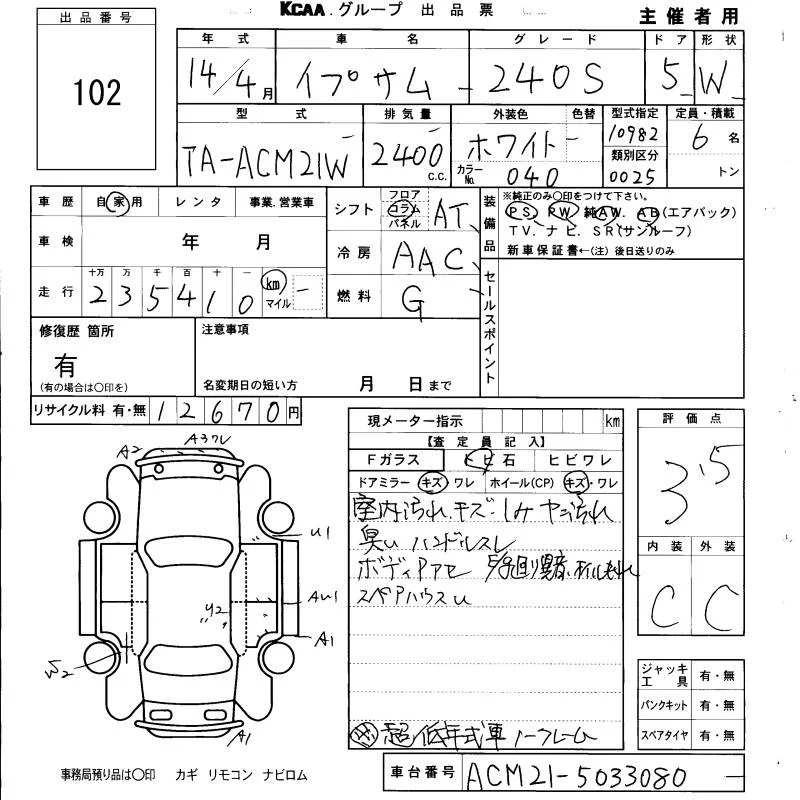 KCAA.グループ 出品票
主催者用
出品番号
102
年式 車名 グレード ドア 形状
14/4月 イプサム 240S 5 W
型式 排気量 外装色 色替 型式指定 定員・積載
TA-ACM21W 2400 c.c. ホワイト 10982 6名
カラーNo. 040 類別区分 0025 トン
車歴 自家用 レンタ 事業.営業車
シフト フロア コラム パネル AT
装備品 ※純正のみ○印をつけて下さい。
PS. PW. 純AW. AB(エアバック)
TV. ナビ. SR(サンルーフ)
新車保証書←(注)後日送りのみ
車検 年 月
冷房 AAC
走行 十万 万 千 百 十 一
235410 km マイル
燃料 G
セールスポイント
修復歴 箇所
有
(有の場合は○印を)
注意事項
名変期日の短い方 月 日まで
リサイクル料 有・無 12670円
現メーター指示 km
【査定員記入】
Fガラス トビ石 ヒビワレ
ドアミラー キズ・ワレ ホイール(CP) キズ・ワレ
室内汚れ.キズ・しみ ヤニ汚れ
臭い ハンドルスレ
ボディアセ
スペアハウスU
超低年式車 ノークレーム
評価点
3.5
内装 外装
C C
A2 A3ワレ
U1
AU1
U2
A1
W2
A1
ジャッキ工具 有・無
パンクキット 有・無
スペアタイヤ 有・無
事務局預り品は○印 カギ リモコン ナビロム
車台番号 ACM21-5033080